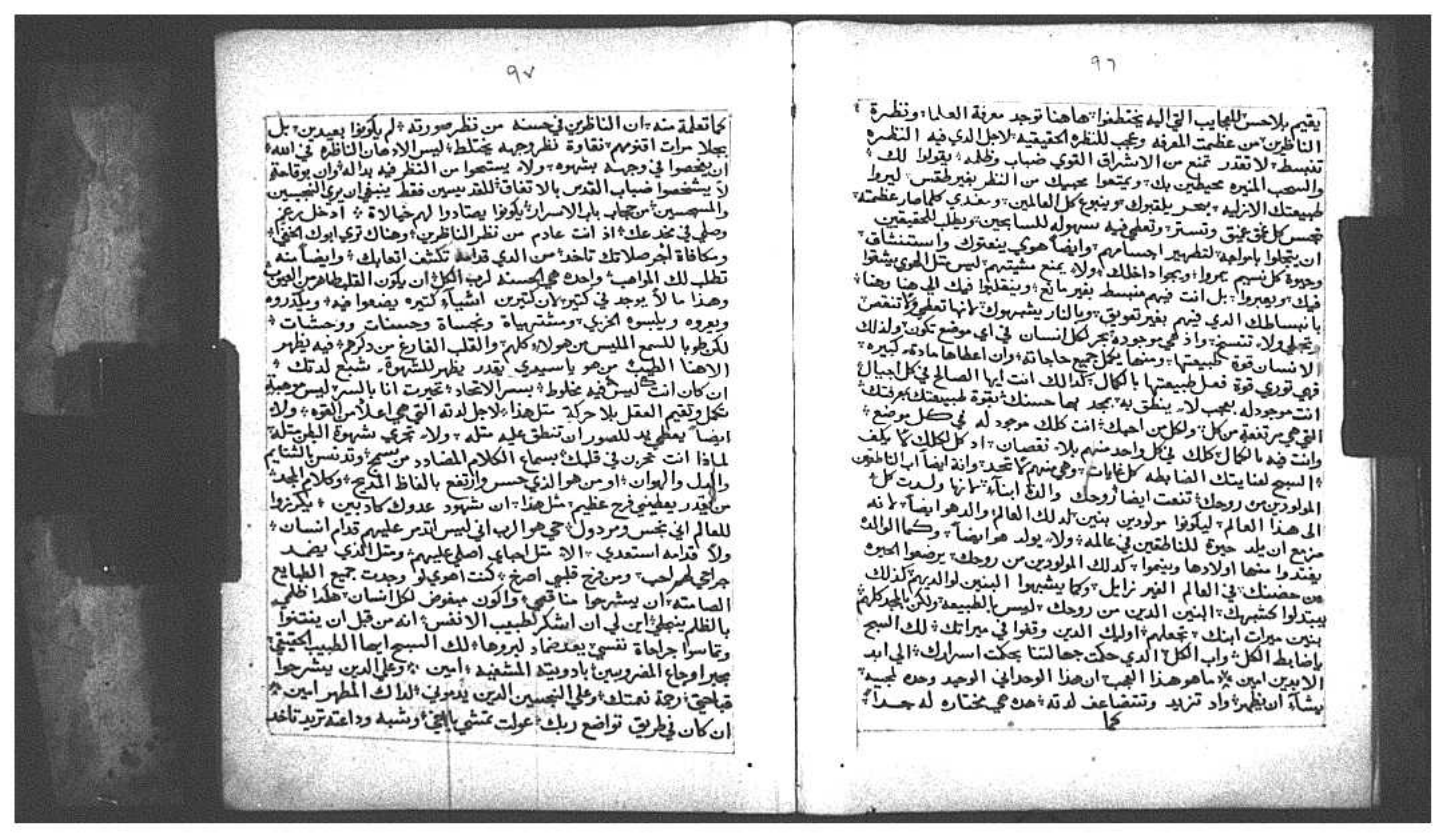 ٩٦
يقيم بلا حس للعجايب التي اليه يختطفوا هاهنا توجد معرفة العلما ونظرة
الناظرين من عظمت المعرفه وعجب للنظره الحقيقيه لاجل الدي فيه النظره
تنبسط لا تقدر تمنع من الاشراق القوي ضباب وظلمه يقولوا لك
والسحب المنيره محيطين بك ويمتعوا محبيك من النظر بغير طقس ليروا
طبيعتك الازليه بحر يلقبوك وينبوع كل العالمين وعندي كلما صار عظمته
تحبس كل عمق عميق وتستر وتعطي فيه سهوله للسابحين ويطلب للحقيقين
ان يتجلوا بامواجه لتطهير اجسامهم وايضا هوي ينعتوك واستنشاق
وحيوة كل نسيم يمروا ويجوا داخلك ولا يمنع مشيتهم ليس مثل الهوي يشقوا
فيك ويعبروا بل انت فيهم منبسط بغير مانع وينقلبوا فيك الى هنا وهنا
بانبساطك الدي فيهم بغير تعويق وبالنار يشبهوك لانها تعطي ولا تنقص
وتجلي ولا تتسخ واذ هي موجوده بحر لكل انسان في اي موضع تكون ولذلك
الانسان قوة طبيعتها ومنها يكمل جميع حاجاته وان اعطاها ماده كبيره
فهي توري قوة فعل طبيعتها بالكمال كدالك انت ايها الصالح في كل اجيال
انت موجود له بعجب لا ينطق به يمجد بها حسنك بقوة طبيعتك بعرفتك
التي هي مرتفعة من كل ولكل من احبك انت كلك موجود له في كل موضع
وانت فيه بالكمال كلك في كل واحد منهم بلا نقصان اد كل لكلك لا يكف
السبح لعنايتك الضابطه كل غايات وهي منهم لا تحد وانة ايضا اب الناطقين
المولودين من روحك تنعت ايضا روحك والدة ابناء لانها ولدت كل
الى هذا العالم ليكونوا مولودين بنين لدلك العالم والد هو ايضا لانه
مزمع ان يلد حيوة للناطقين في عالمه ولا يولد هو ايضا وكما الوالده
يغتدوا منها اولادها وينموا كدلك المولودين من روحك يرضعوا الحيوه
من حضنك في العالم الغير زايل وكما يشبهوا البنين لوالديهم كذلك
يبتدلوا كشبهك البنين الدين من روحك ليس بالطبيعه ولكن بالمجد كلهم
بنين ميرات ابنك تجعلهم اوليك الدين وقفوا في ميراتك لك السبح
يا ضابط الكل واب الكل الدي حكت جهالتنا بحكت اسرارك الي ابد
الابدين امين ما هو هذا العجب ان هذا الوحداني الوحيد وحده لمحبيه
يشاء ان يظهر واد تزيد وتتضاعف لدته هده هي مختاره له جدا
كما
٩٧
كما تعلمة منه ان الناظرين في حسنه من نظر صورته لم يكونوا بعيدين بل
بجلا مرات اقنومهم نقاوة نظر وجهه يختلط ليس الادهان الناظره في الله
ان يفحصوا في وجهه بشهوه ولا يستحوا من النظر فيه بداله وان بوقاحة
لا يشخصوا ضباب القدس بالاتفاق للقديسين فقط ينبغي ان يري النجسين
والمسجسين من حجاب باب الاسرار يكونوا يصتادوا لهم خيالاة ادخل رعز
وصلي في مخدعك اذ انت عادم من نظر الناظرين وهناك تري ابوك الخفي
ومكافاة اجر صلاتك تاخد من الدي قدامه تكشف اتعابك وايضا منه
تطلب لك المواهب واحده هي الحسنه لرب الكل ان يكون القلب طاهر من العيوب
وهدا ما لا يوجد في كتير لان كتيرين اشياء كتيره يضعوا فيه ويكدروه
ويعروه ويلبسوه الخزي ومشتهياة ونجساة وحسنات ووحشات
لكن طوبا للسمع المليس من هولاء كلهم والقلب الفارغ من دكرهم فيه يظهر
الاهنا الطيب من هو يا سيدي يقدر يظهر للشهوة شبع لدتك
ان كان انت ليس فيه مخلوط بسر الاتحاد تحيرت انا بالسر ليس موهبة
تكمل وتقيم العقل بلا حركة متل هذا لاجل لدته التي هي اعلا من القوه ولا
ايضا يعطي يد للصور ان تنطق عليه متله ولا تجري شهوة اليمن متله
لماذا انت تحزن في قلبك بسماع الكلام المضادد من يسمح وتدنس بالشتايم
والدل والهوان او من هو الذي حسر وارتفع بالفاظ المديح وكلام المجد
من يقدر يعطيني فرح عظيم متل هدا ان شهود عدوك كادبين يكرزوا
للعالم اني نجس ومردول حي هو الرب اني ليس اتدمر عليهم قدام انسان
ولا قدامه استعدي الا متل احباي اصلي عليهم ومتل الذي يضمد
جراحي لهم احب ومن فرح قلبي اصرخ كنت اهوي لو وجدت جميع الطبايع
الصامته ان يشرحوا مناقصي واكون مبغوض لكل انسان هكدا ظلمي
بالظلم ينجلي اين لي ان اشكر لطبيب الانفس انه من قبل ان ينتنوا
وتماسوا جراحاة نفسي يعد ضماد ليروها لك السبح ايها الطبيب الحقيقي
يجبر اوجاع المضروبين بادويته المشفيه امين وعلي الدين يشرحوا
قباحتي رحمة نعمتك وعلي النجسين الدين يدموني لداك المطهر امين
ان كان في طريق تواضع ربك عولت تمشي يا اخي وشبه وداعته تريد تاخد